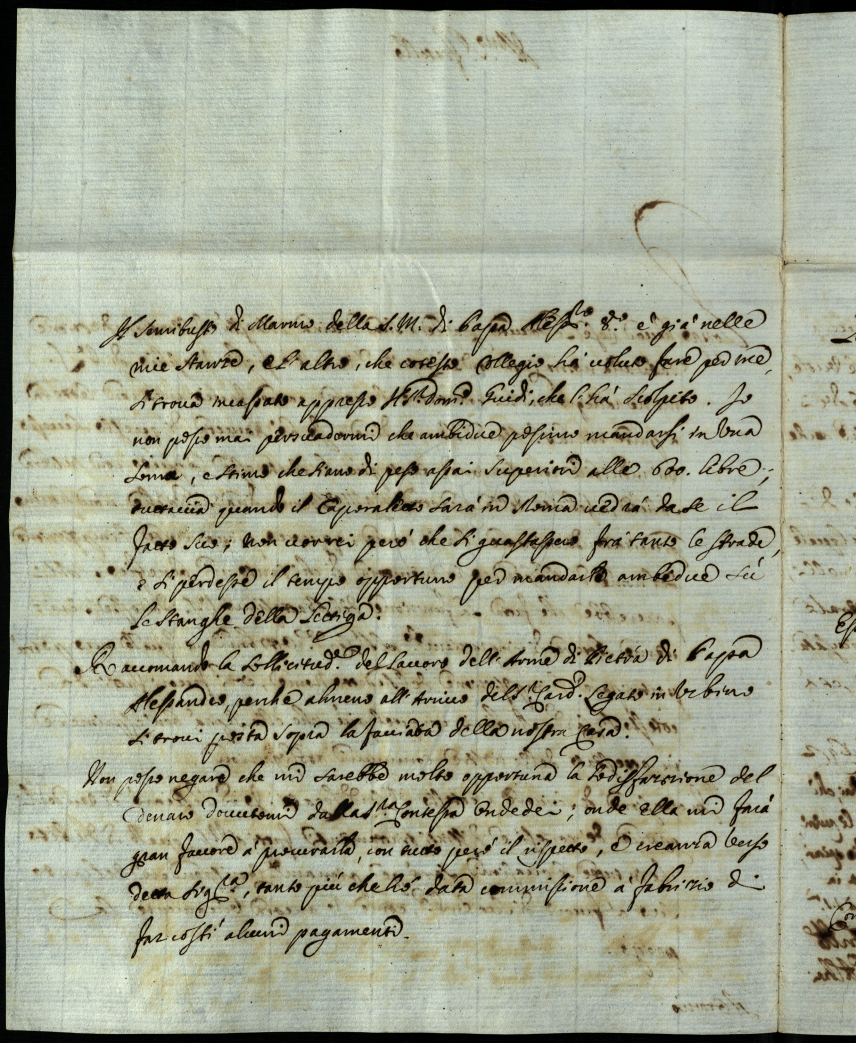 Il Semibusto di Marmo della S. M. di Papa Aless.ro 8.o è già nelle
mie stanze, e l'altro, che cotesto Collegio hà voluto fare per me,
si trova incassato appresso Dom.o Guidi, che l'hà scolpito. Io
non posso mai persuadermi che ambidue possino mandarsi in una
soma, e stimo che siano di peso assai superiore alle 600. libre;
tuttavia quando il Caporaletto sarà in Roma vedrà da se il
fatto suo; non vorrei però che si guastassero frà tanto le strade,
e si perdesse il tempo opportuno per mandarli ambedue sù
le stanghe della Lettiga.
Raccomando la sollicitud.e del lavoro dell'Arme di Pietra di Papa
Alessandro, perche almeno all'Arrivo del S.r Card.l Legato in Urbino
si trovi posta sopra la facciata della nostra Casa.
Non posso negare che mi sarebbe molto opportuna la sodisfazzione del
denaro dovutomi dalla S.ra Contessa Ondedei; onde ella mi farà
gran favore à procurarla, con tutto però il rispetto, e creanza verso
detta Sig.ra, tanto più che hò data commissione à Fabrizio di
far costì alcuni pagamenti.